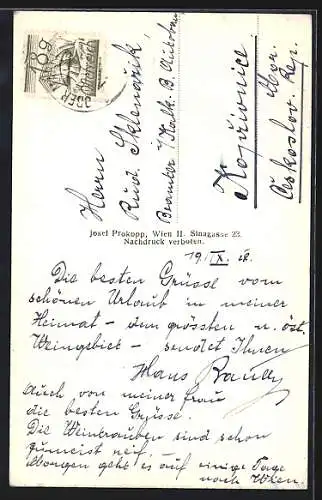 18 g
Herrn
Rud. Sklenařik,
Beamter
Kopřivnice
Mor.
Českoslov. Rep.
Josef Prokopp, Wien II. Sinagasse 23.
Nachdruck verboten.
19. IX.
Die besten Grüsse vom
schönen Urlaub in meiner
Heimat – dem grössten u. öst.
Weingebiet – sendet Ihnen
Hans
Auch von meiner Frau
die besten Grüsse.
Die Weintrauben sind schon
zumeist reif. –
Morgen geht es auf einige Tage
nach Wien.